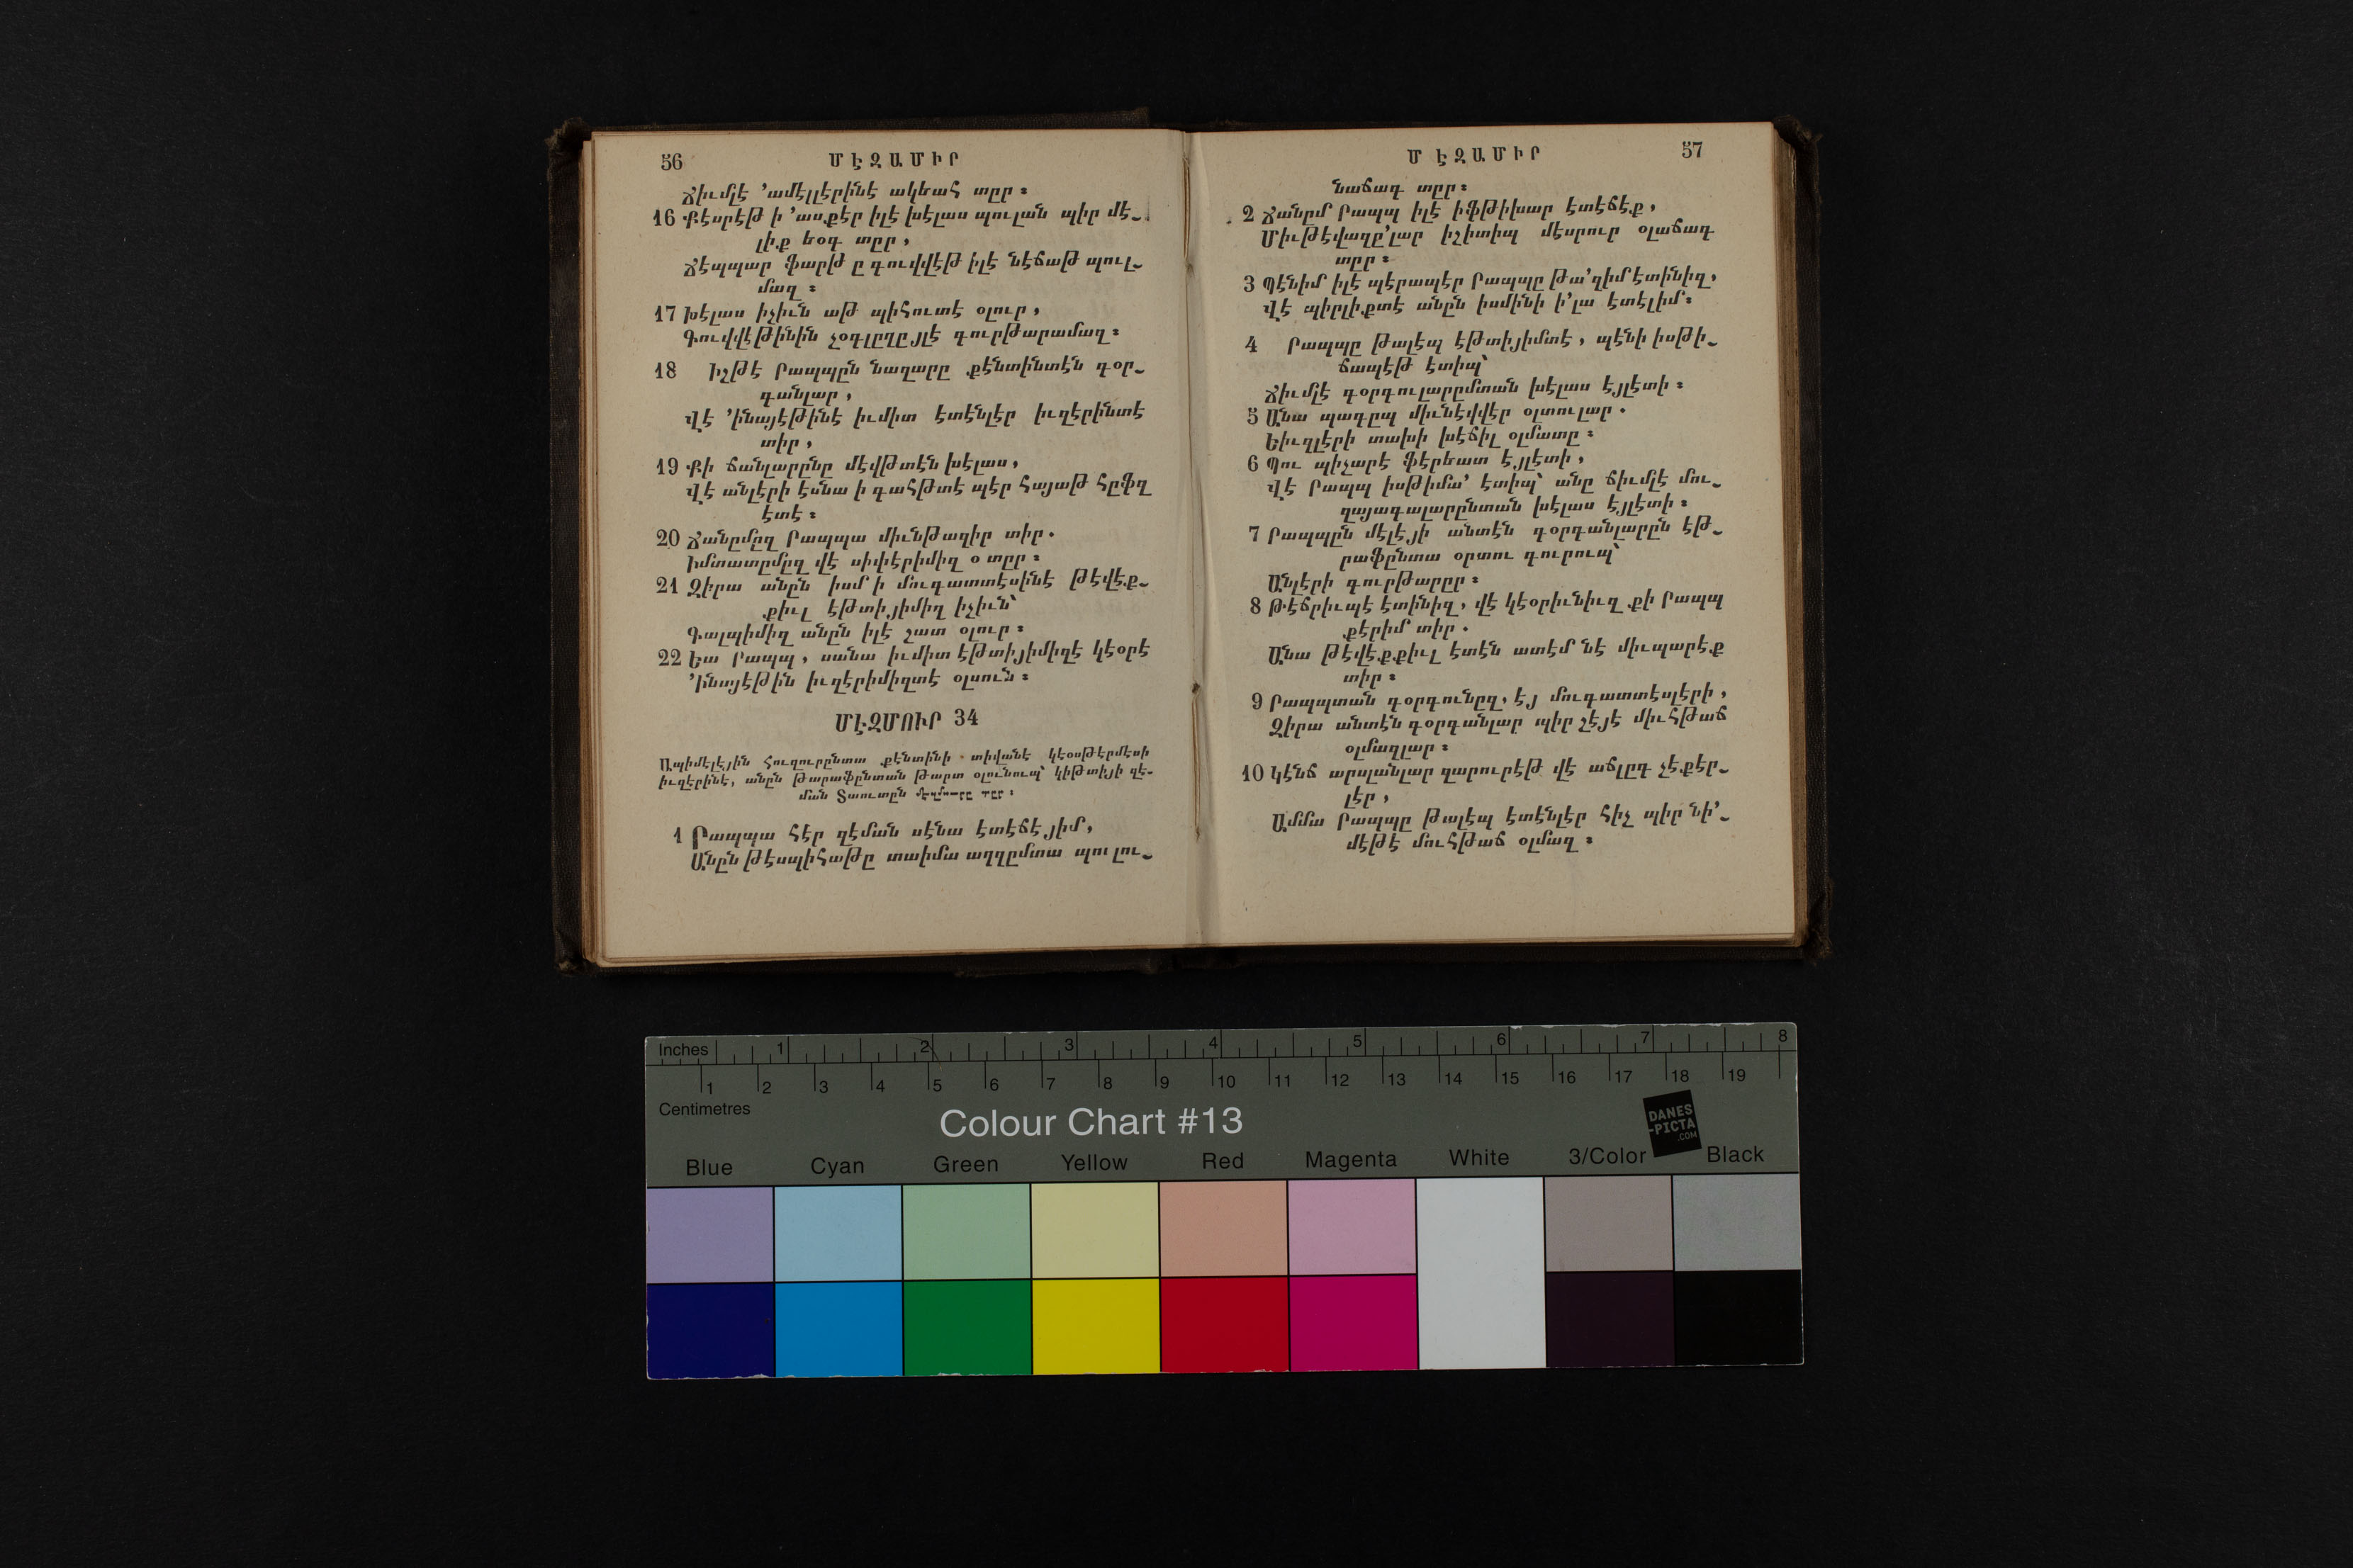 56
ՄԷԶԱՄԻՐ
Ճիւմլէ ՚ամէլլէրինէ ակեահ տըր ։
16 Քէսրէթ ի ՚ասքէր իլէ խէլաս պուլան պիր մէ֊
լիք եօգ տըր ,
Ճէպպար ֆարթ ը գուվվէթ իլէ նէճաթ պուլ֊
մազ ։
17 Խէլաս իչիւն աթ պիհուտէ օլուր ,
Գուվվէթինին չօգլըղըյլէ գուրթարամազ ։
18 Իշթէ Րապպըն նազարը քէնտինտէն գօր֊
գանլար ,
Վէ ՚ինայէթինէ իւմիտ էտէնլէր իւզէրինտէ
տիր ,
19 Քի ճանլարընը մէվթտէն խէլաս ,
Վէ անլէրի էսնա ի գահթտէ պէր հայաթ հըֆզ
էտէ ։
20 Ճանըմըզ Րապպա միւնթազիր տիր .
Իմտատըմըզ վէ սիփէրիմիզ օ տըր ։
21 Զիրա անըն իսմ ի մուգատտէսինէ թէվէք֊
քիւլ էթտիյիմիզ իչիւն՝
Գալպիմիզ անըն իլէ շատ օլուր ։
22 Եա Րապպ , սանա իւմիտ էթտիյիմիզէ կէօրէ
՚Ինայէթին իւզէրիմիզտէ օլսուն ։
ՄԷԶՄՈՒՐ 34
Ապիմէլէյին հուզուրընտա քէնտինի տիվանէ կէօսթէրմէսի
իւզէրինէ, անըն թարաֆընտան թարտ օլունուպ՝ կիթտիյի զէ֊
ման Տաուտըն մէզմուրը տըր ։
1 Րապպա հէր զէման սէնա էտէճէյիմ ,
Անըն թէսպիհաթը տաիմա աղզըմտա պուլու֊
ՄԷԶԱՄԻՐ
57
նաճագ տըր ։
2 Ճանըմ Րապպ իլէ իֆթիխար էտէճէք ,
Միւթէվազը՚լար իշիտիպ մէսրուր օլաճագ
տըր ։
3 Պէնիմ իլէ պէրապէր Րապպը թա՚զիմ էտինիզ ,
Վէ պիրլիքտէ անըն իսմինի ի՚լա էտէլիմ ։
4 Րապպը թալէպ էթտիյիմտէ , պէնի իսթի֊
ճապէթ էտիպ՝
Ճիւմլէ գօրգուլարըմտան խէլաս էյլէտի ։
5 Անա պագըպ միւնէվվէր օլտուլար .
Եիւզլէրի տախի խէճիլ օլմատը ։
6 Պու պիչարէ ֆէրեատ էյլէտի ,
Վէ Րապպ իսթիմա՚ էտիպ՝ անը ճիւմլէ մու֊
զայագալարընտան խէլաս էյլէտի ։
7 Րապպըն մէլէյի անտէն գօրգանլարըն էթ֊
րաֆընտա օրտու գուրուպ՝
Անլէրի գուրթարըր ։
8 Թէճրիւպէ էտինիզ , վէ կէօրիւնիւզ քի Րապպ
քէրիմ տիր .
Անա թէվէքքիւլ էտէն ատէմ նէ միւպարէք
տիր ։
9 Րապպտան գօրգունըզ , էյ մուգատտէսլէրի ,
Զիրա անտէն գօրգանլար պիր շէյէ միւհթաճ
օլմազլար ։
10 Կէնճ արսլանլար զարուրէթ վէ աճլըգ չէքէր֊
լէր ,
Ամմա Րապպը թալէպ էտէնլէր հիչ պիր նի՚֊
մէթէ մուհթաճ օլմազ ։
Inches 1 2 3 4 5 6 7 8
1 2 3 4 5 6 7 8 9 10 11 12 13 14 15 16 17 18 19
Centimetres
Colour Chart #13
DANES
-PICTA
.COM
Blue Cyan Green Yellow Red Magenta White 3/Color Black